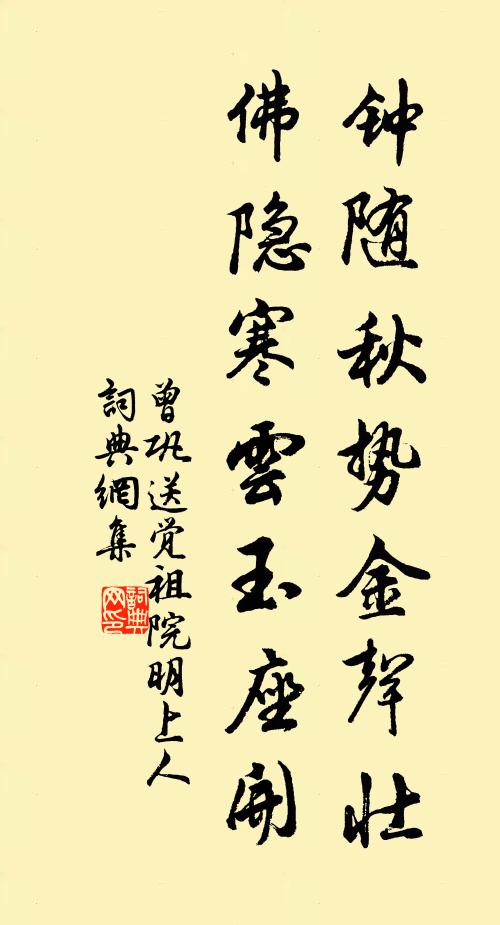 钟随秋势金聲壮
佛隐寒雲玉座開
曾巩送觉祖院明上人
詞典網集
詞典网印